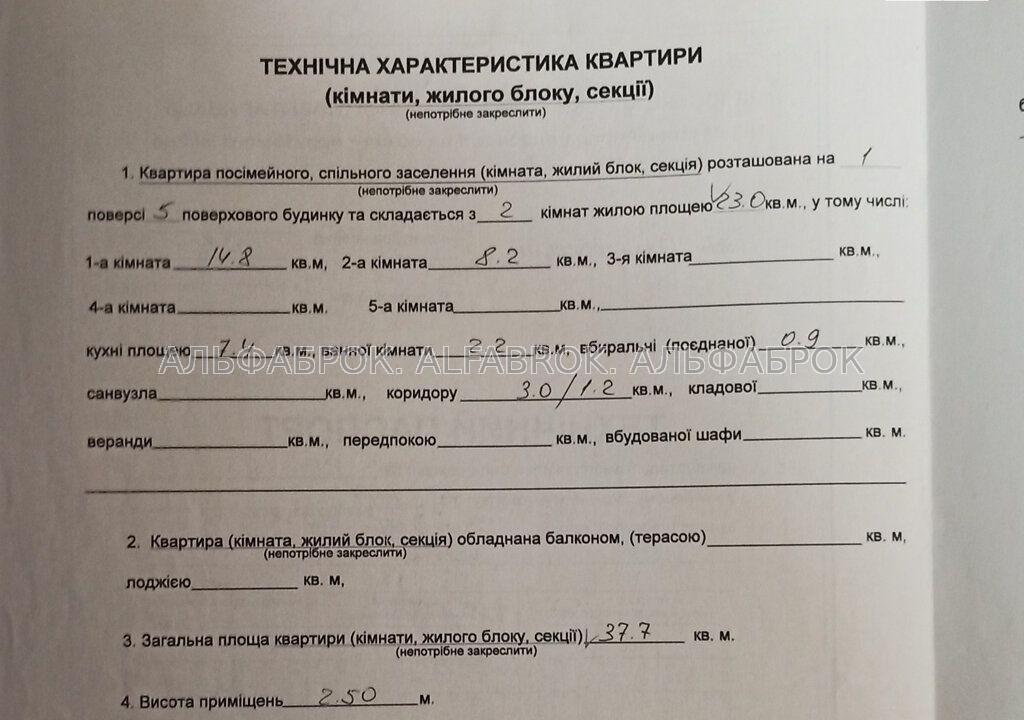 ТЕХНІЧНА ХАРАКТЕРИСТИКА КВАРТИРИ
(кімнати, жилого блоку, секції)
(непотрібне закреслити)
1. Квартира посімейного, спільного заселення (кімната, жилий блок, секція) розташована на 1
(непотрібне закреслити)
поверсі 5 поверхового будинку та складається з 2 кімнат жилою площею 23.0 кв.м., у тому числі:
1-а кімната 14.8 кв.м, 2-а кімната 8.2 кв.м., 3-я кімната кв.м.,
4-а кімната кв.м. 5-а кімната кв.м.,
кухні площею 7.4 кв.м., ванної кімнати 2.2 кв.м, вбиральні (поєднаної) 0.9 кв.м.,
АЛЬФАБРОК. ALFABROK. АЛЬФАБРОК
санвузла кв.м., коридору 3.0/1.2 кв.м., кладової кв.м.,
веранди кв.м., передпокою кв.м., вбудованої шафи кв. м.
2. Квартира (кімната, жилий блок, секція) обладнана балконом, (терасою) кв. м,
(непотрібне закреслити)
лоджією кв. м,
3. Загальна площа квартири (кімнати, жилого блоку, секції) 37.7 кв. м.
(непотрібне закреслити)
4. Висота приміщень 2.50 м.